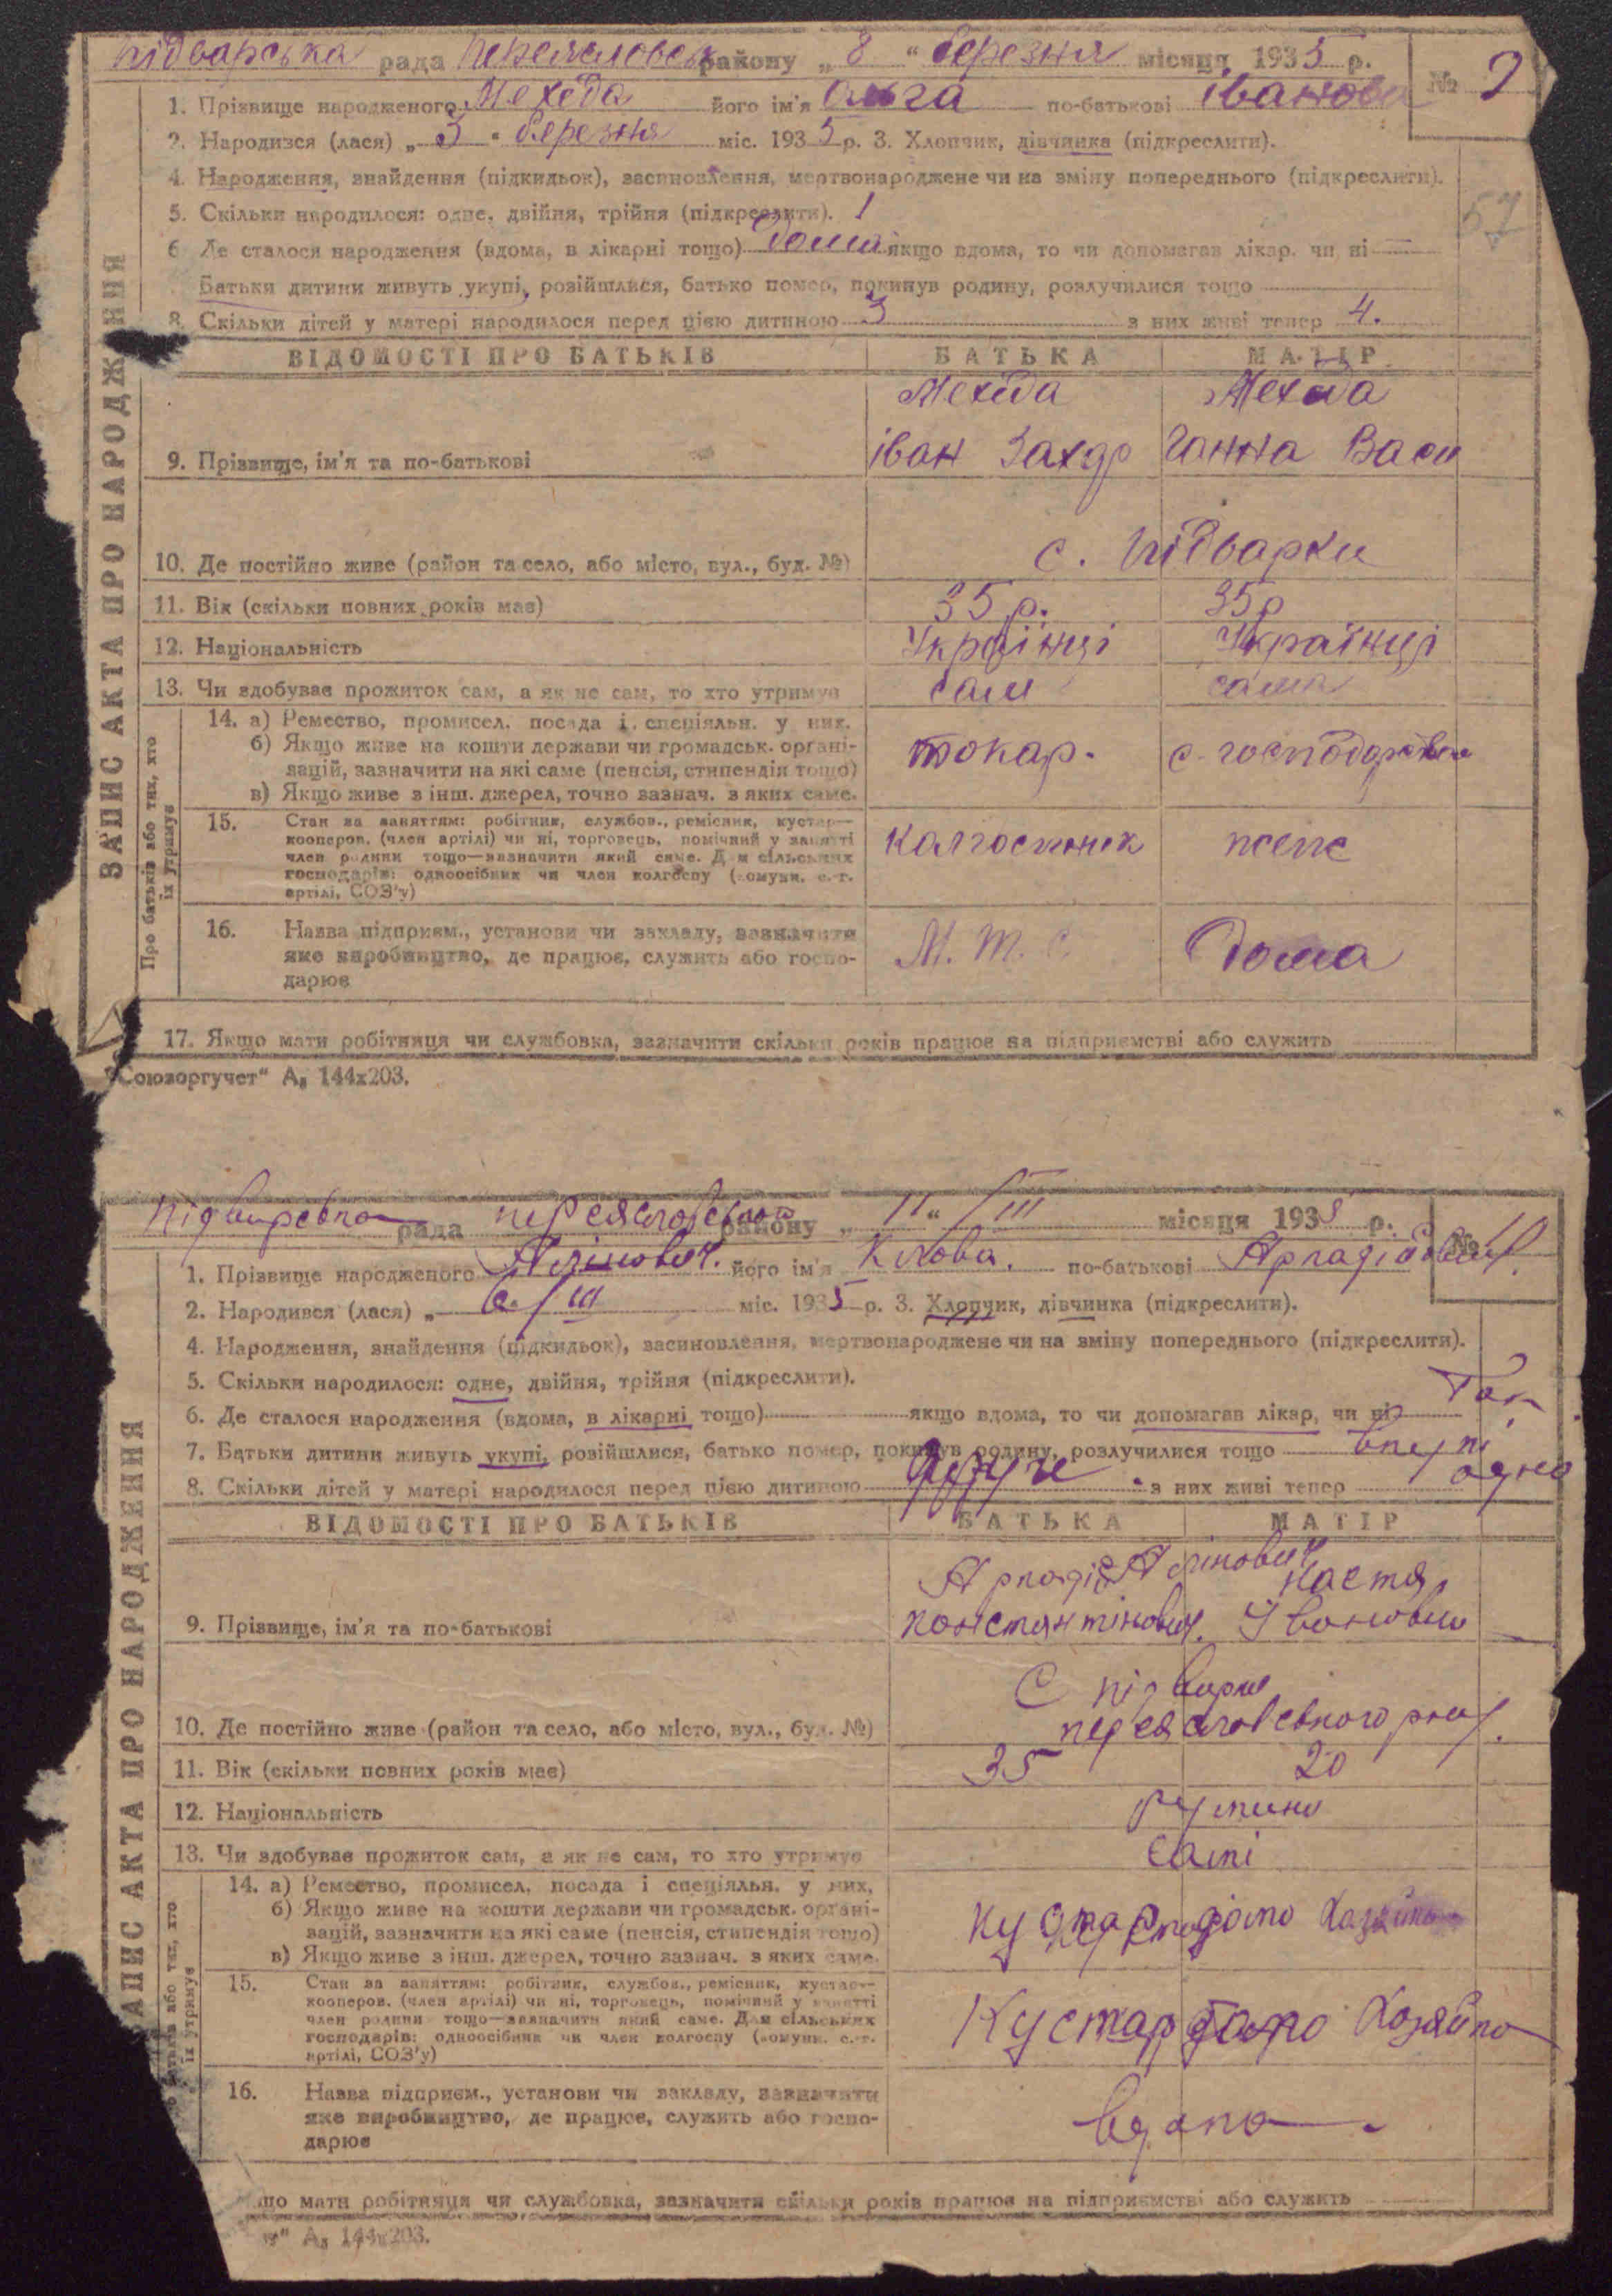 підварська рада Переяславськ району „ 8 “ березня місяця 1935 р.
№ 9
1. Прізвище народженого Мехеда його ім'я Ольга по-батькові івановн
2. Народизся (лася) „ 3 “ березня міс. 1935 р. 3. Хлопчик, дівчинка (підкреслити).
4. Народження, знайдення (підкидьок), засиновлення, мертвонароджене чи на зміну попереднього (підкреслити).
57
5. Скільки народилося: одне, двійня, трійня (підкреслити). 1
6 Де сталося народження (вдома, в лікарні тощо) Дома якщо вдома, то чи допомагав лікар. чи ні —
Батьки дитини живуть укупі, розійшлися, батько помер, покинув родину, розлучилися тощо
8. Скільки дітей у матері народилося перед цією дитиною 3 з них живі тепер 4.
ЗАПИС АКТА ПРО НАРОДЖЕННЯ
ВІДОМОСТІ ПРО БАТЬКІВ БАТЬКА МАТІР
Мехеда Мехеда
9. Прізвище, ім'я та по-батькові іван Захар Ганна Васи
10. Де постійно живе (район та село, або місто, вул., буд. №) с. Підварки
11. Вік (скільки повних років має) 35 р. 35 р
12. Національність Українці Українці
13. Чи здобуває прожиток сам, а як не сам, то хто утримує сам сама
Про батьків або тих, хто їх утримує
14. а) Ремество, промисел, посада і спеціяльн. у них.
б) Якщо живе на кошти держави чи громадськ. органі-
зацій, зазначити на які саме (пенсія, стипендія тощо) токар. с. господарства
в) Якщо живе з інш. джерел, точно зазнач. з яких саме.
15. Стан за заняттям: робітник, службов., ремісник, кустар—
кооперов. (член артілі) чи ні, торговець, помічний у занятті
член родини тощо—зазначити який саме. Для сільських
господарів: одноосібник чи член колгоспу (комуни, с.-г.
артілі, СОЗ'у)
колгоспник
16. Назва підприєм., установи чи закладу, зазначити
яке виробництво, де працює, служить або госпо-
дарює
М. Т. С. Дома
17. Якщо мати робітниця чи службовка, зазначити скільки років працює на підприємстві або служить
"Союзоргучет" А₅ 144х203.
рада району „ 11 “ /III місяця 1935 р.
№ 10.
1. Прізвище народженого його ім'я по-батькові
2. Народився (лася) „ 6./III міс. 1935 р. 3. Хлопчик, дівчинка (підкреслити).
4. Народження, знайдення (підкидьок), засиновлення, мертвонароджене чи на зміну попереднього (підкреслити).
5. Скільки народилося: одне, двійня, трійня (підкреслити).
6. Де сталося народження (вдома, в лікарні тощо) якщо вдома, то чи допомагав лікар, чи ні Так.
7. Батьки дитини живуть укупі, розійшлися, батько помер, покинув родину, розлучилися тощо вкупі
8. Скільки дітей у матері народилося перед цією дитиною друге з них живі тепер одно
ЗАПИС АКТА ПРО НАРОДЖЕННЯ
ВІДОМОСТІ ПРО БАТЬКІВ БАТЬКА МАТІР
Аркадій Настя
9. Прізвище, ім'я та по-батькові Константінович. Ивановна
С підварки
10. Де постійно живе (район та село, або місто, вул., буд. №) переяславського рай.
11. Вік (скільки повних років має) 35 20
12. Національність
13. Чи здобуває прожиток сам, а як не сам, то хто утримує самі
14. а) Ремество, промисел, посада і спеціяльн. у них,
б) Якщо живе на кошти держави чи громадськ. органі-
зацій, зазначити на які саме (пенсія, стипендія тощо) кустар
в) Якщо живе з інш. джерел, точно зазнач. з яких саме.
15. Стан за заняттям: робітник, службов., ремісник, кустар—
кооперов. (член артілі) чи ні, торговець, помічний у занятті
член родини тощо—зазначити який саме. Для сільських
господарів: одноосібник чи член колгоспу (комуни, с.-г.
артілі, СОЗ'у)
Кустар Хозяйка
16. Назва підприєм., установи чи закладу, зазначити
яке виробництво, де працює, служить або госпо-
дарює
вдома
що мати робітниця чи службовка, зазначити скільки років працює на підприємстві або служить
" А₅ 144х203.